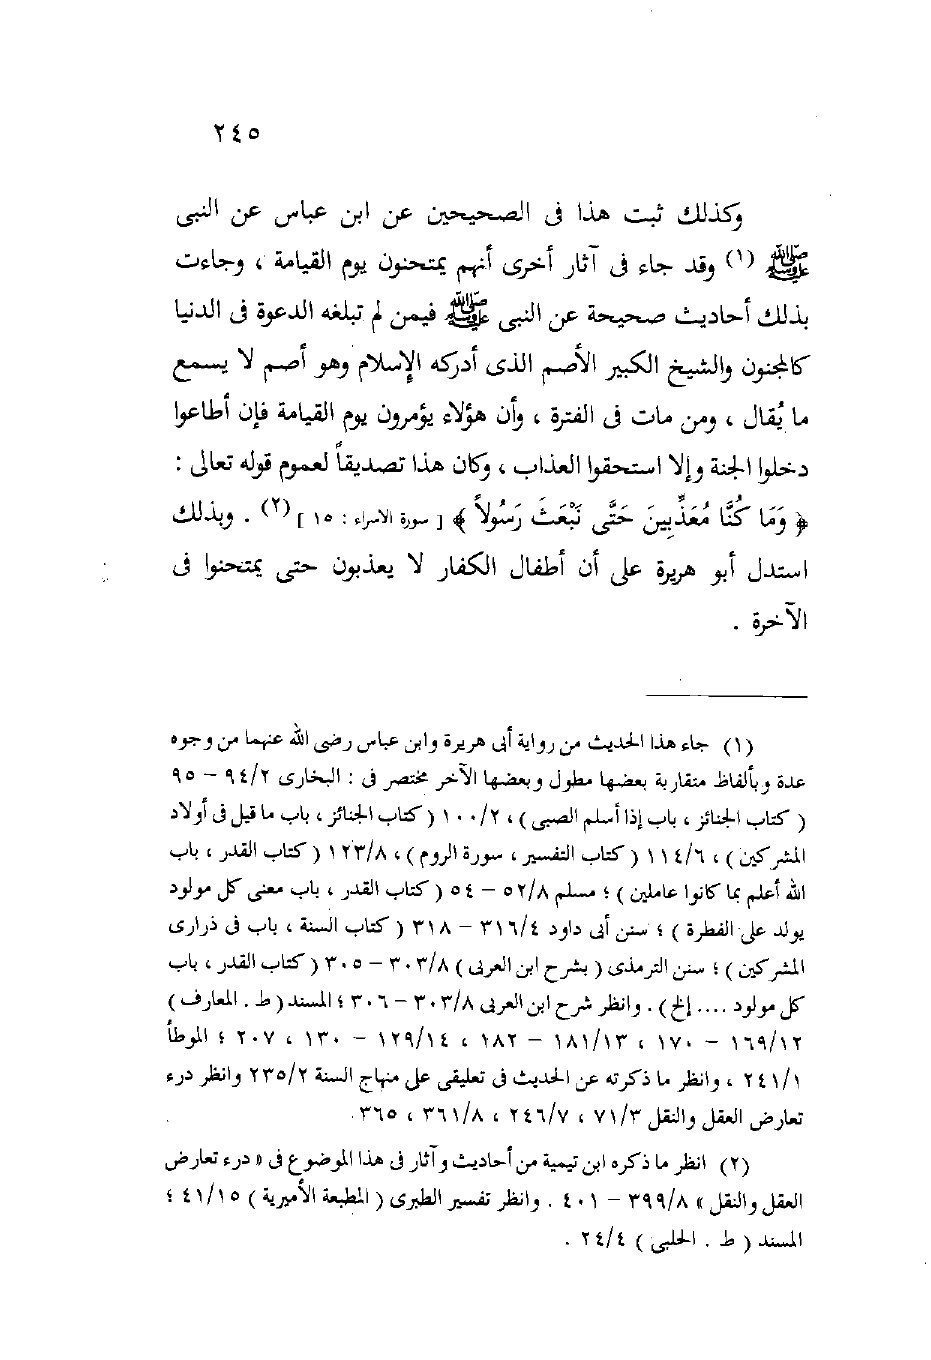 ٢٤٥
وكذلك ثبت هذا فى الصحيحين عن ابن عباس عن النبى
ﷺ (١) وقد جاء فى آثار أخرى أنهم يمتحنون يوم القيامة ، وجاءت
بذلك أحاديث صحيحة عن النبى ﷺ فيمن لم تبلغه الدعوة فى الدنيا
كالمجنون والشيخ الكبير الأصم الذى أدركه الإسلام وهو أصم لا يسمع
ما يُقال ، ومن مات فى الفترة ، وأن هؤلاء يؤمرون يوم القيامة فإن أطاعوا
دخلوا الجنة وإلا استحقوا العذاب ، وكان هذا تصديقاً لعموم قوله تعالى :
﴿ وَمَا كُنَّا مُعَذِّبِينَ حَتَّى نَبْعَثَ رَسُولاً ﴾ [ سورة الاسراء : ١٥ ] (٢) . وبذلك
استدل أبو هريرة على أن أطفال الكفار لا يعذبون حتى يمتحنوا فى
الآخرة .
(١) جاء هذا الحديث من رواية أبى هريرة وابن عباس رضى الله عنهما من وجوه
عدة وبألفاظ متقاربة بعضها مطول وبعضها الآخر مختصر فى : البخارى ٩٤/٢ – ٩٥
( كتاب الجنائز ، باب إذا أسلم الصبى ) ، ١٠٠/٢ ( كتاب الجنائز ، باب ما قيل فى أولاد
المشركين ) ، ١١٤/٦ ( كتاب التفسير ، سورة الروم ) ، ١٢٣/٨ ( كتاب القدر ، باب
الله أعلم بما كانوا عاملين ) ؛ مسلم ٥٢/٨ – ٥٤ ( كتاب القدر ، باب معنى كل مولود
يولد على الفطرة ) ؛ سنن أبى داود ٣١٦/٤ – ٣١٨ ( كتاب السنة ، باب فى ذرارى
المشركين ) ؛ سنن الترمذى ( بشرح ابن العربى ) ٣٠٣/٨ – ٣٠٥ ( كتاب القدر ، باب
كل مولود .... إلخ ) . وانظر شرح ابن العربى ٣٠٣/٨ – ٣٠٦ ؛ المسند ( ط . المعارف )
١٦٩/١٢ – ١٧٠ ، ١٨١/١٣ – ١٨٢ ، ١٢٩/١٤ – ١٣٠ ، ٢٠٧ ؛ الموطأ
٢٤١/١ ، وانظر ما ذكرته عن الحديث فى تعليقى على منهاج السنة ٢٣٥/٢ وانظر درء
تعارض العقل والنقل ٧١/٣ ، ٢٤٦/٧ ، ٣٦١/٨ ، ٣٦٥ .
(٢) انظر ما ذكره ابن تيمية من أحاديث وآثار فى هذا الموضوع فى « درء تعارض
العقل والنقل » ٣٩٩/٨ – ٤٠١ . وانظر تفسير الطبرى ( المطبعة الأميرية ) ٤١/١٥ ؛
المسند ( ط . الحلبى ) ٢٤/٤ .